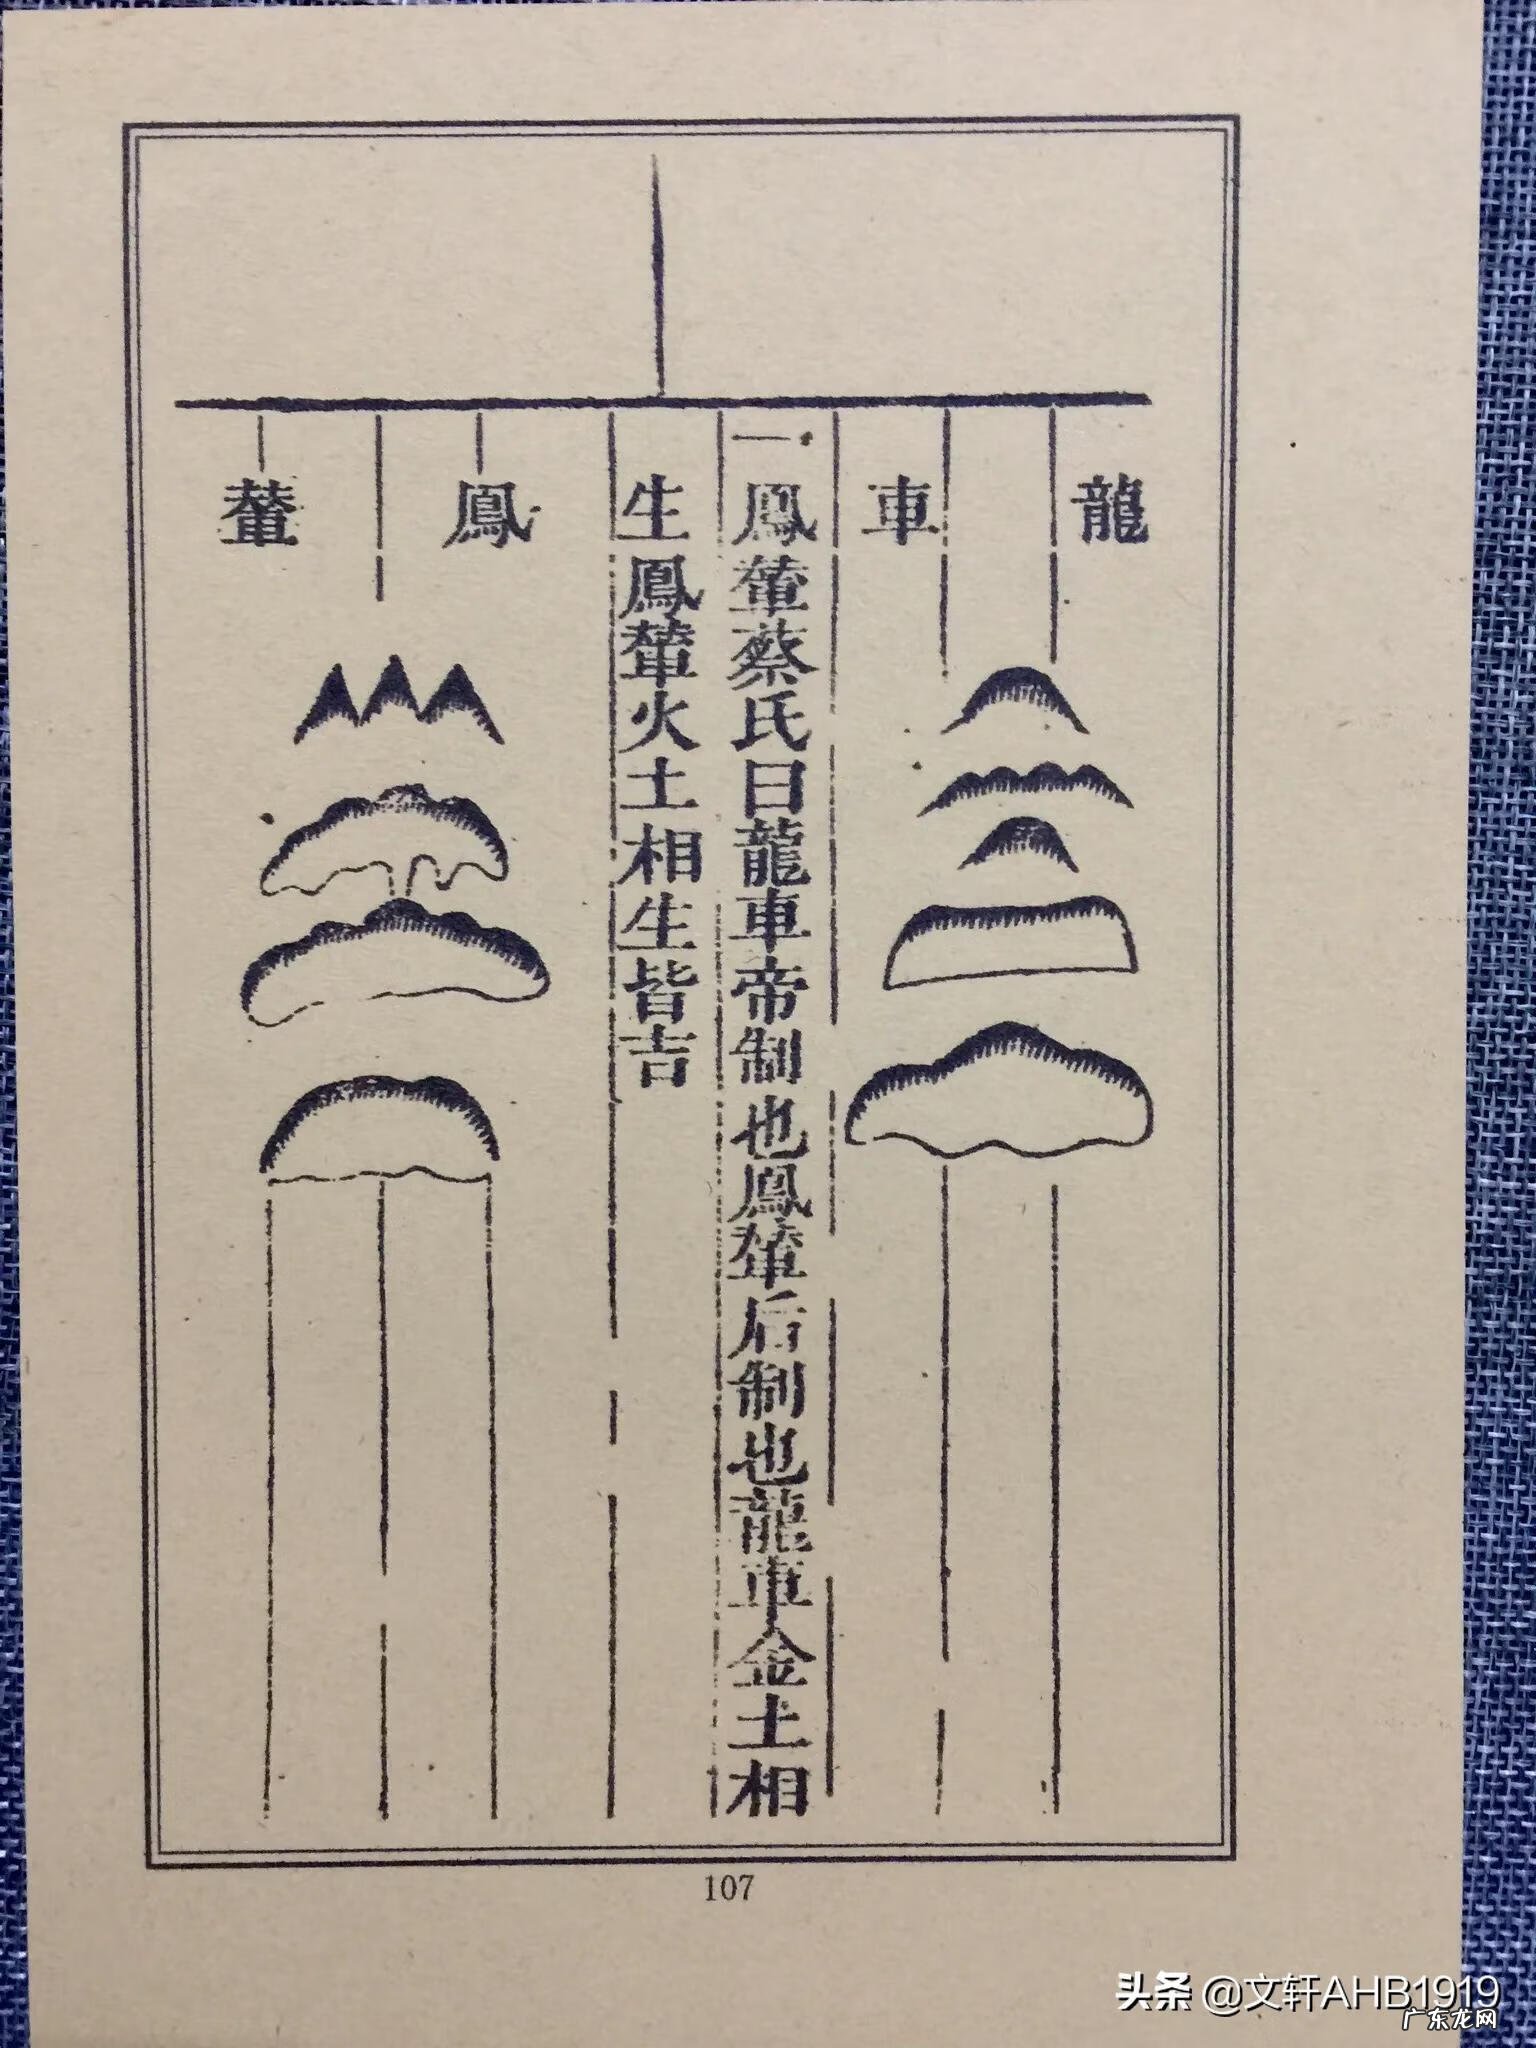 龍
車
一鳳輦蔡氏曰龍車帝制也鳳輦后制也龍車金土相
生鳳輦火土相生皆吉
鳳
輦
107
头条 @文轩AHB1919
广东龙网